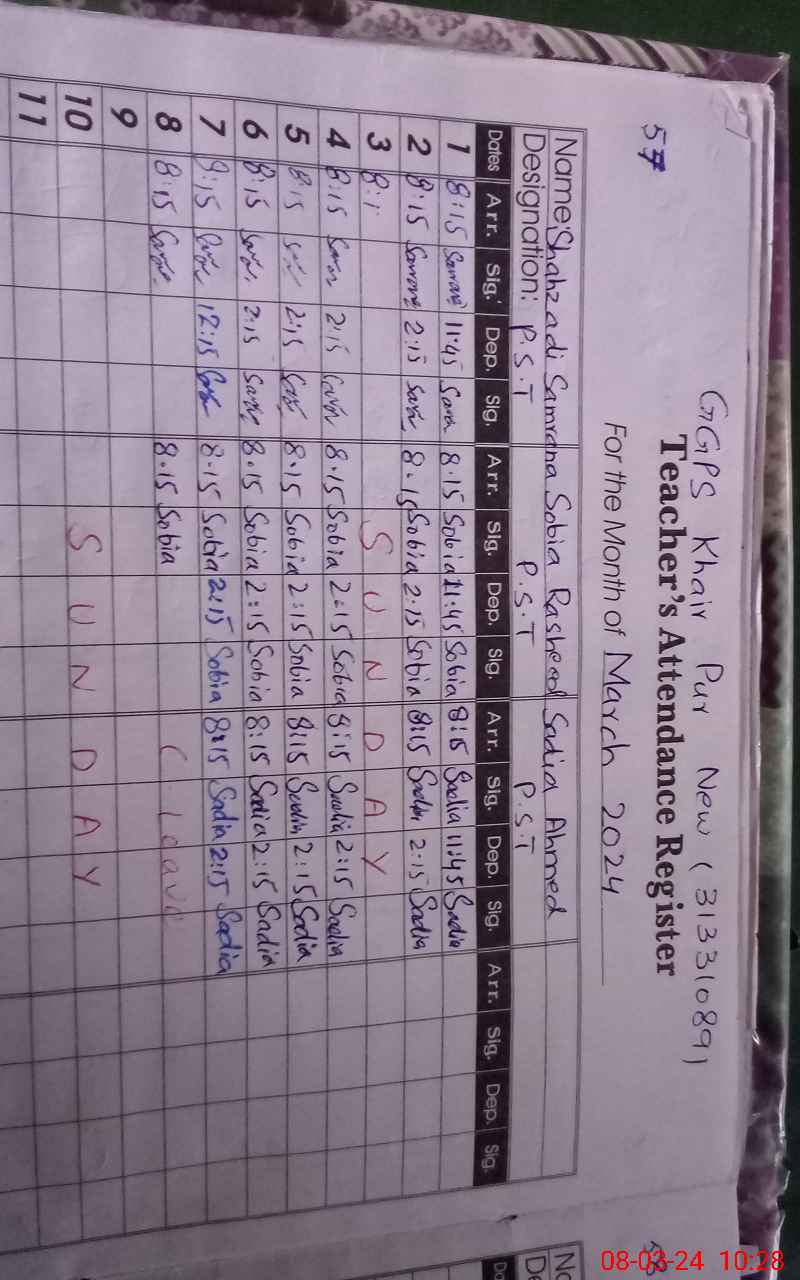 57
GGPS Khair Pur New (31331089)
Teacher's Attendance Register
For the Month of March 2024
Name: Shahzadi Samrana Sobia Rasheed Sadia Ahmed
Designation: P.S.T P.S.T P.S.T
Dates Arr. Sig. Dep. Sig. Arr. Sig. Dep. Sig. Arr. Sig. Dep. Sig. Arr. Sig. Dep. Sig.
1 8:15 11:45 8.15 Sobia 11:45 Sobia 8:15 Sadia 11:45 Sadia
2 8:15 2:15 8.15 Sobia 2:15 Sobia 8:15 Sadia 2:15 Sadia
3 8:1 SUNDAY
4 8:15 2:15 8.15 Sobia 2:15 Sobia 8:15 Sadia 2:15 Sadia
5 8:15 2:15 8.15 Sobia 2:15 Sobia 8:15 Sadia 2:15 Sadia
6 8:15 2:15 8.15 Sobia 2:15 Sobia 8:15 Sadia 2:15 Sadia
7 8:15 12:15 8.15 Sobia 2:15 Sobia 8:15 Sadia 2:15 Sadia
8 8:15 8.15 Sobia C. leave
9
10 SUNDAY
11
58
08-03-24 10:28